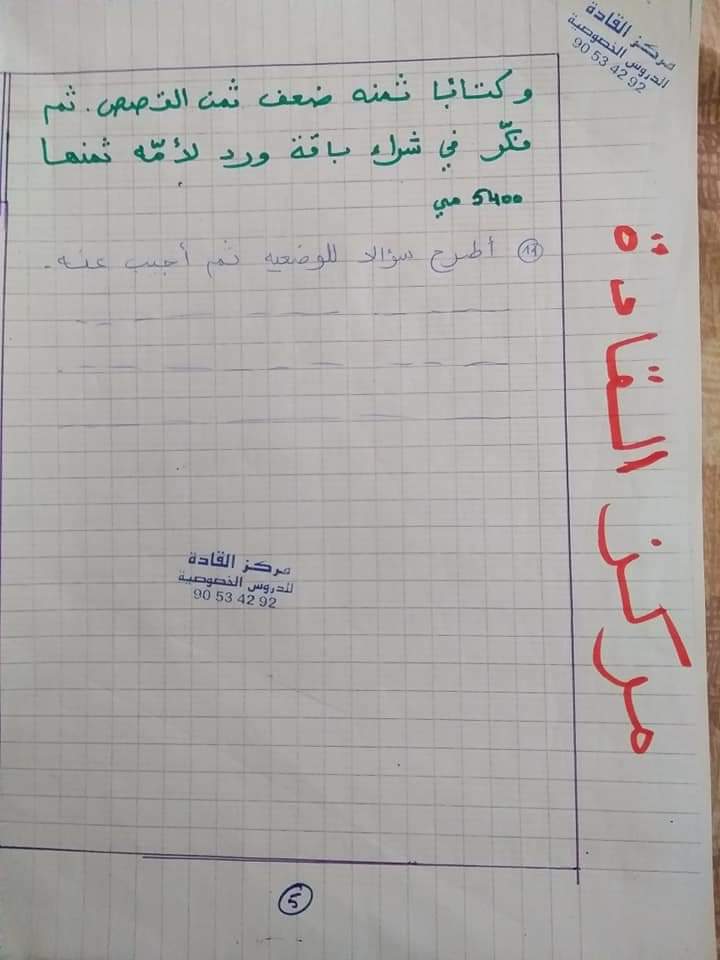 مركز القادة
للدروس الخصوصية
90 53 42 92
وكتابا ثمنه ضعف ثمن القصص. ثم
فكّر في شراء باقة ورد لأمّه ثمنها
5400 مي
11 أطرح سؤالا للوضعية ثم أجيب عنه.
مركز القادة
مركز القادة
للدروس الخصوصية
90 53 42 92
5